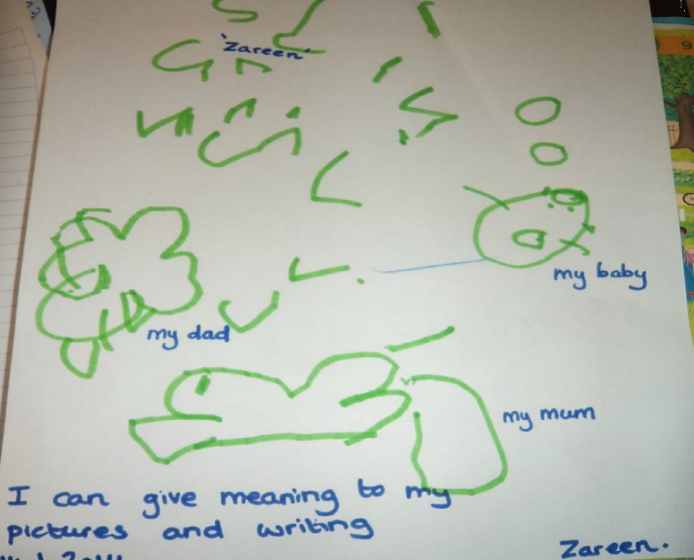 'Zareen'
my baby
my dad
my mum
I can give meaning to my
pictures and writing
Zareen.